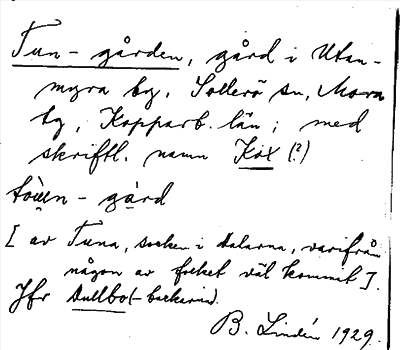 Tun-gården, gård i Utan-
myra by, Sollerö sn, Mora
tg, Kopparb. län; med
skriftl. namn Kax (?)
tòu̯en-gàrd
[av Tuna, socken i Dalarna, varifrån
någon av folket väl kommit].
Jfr Dullbo(-backarna).
B. Lindén 1929.